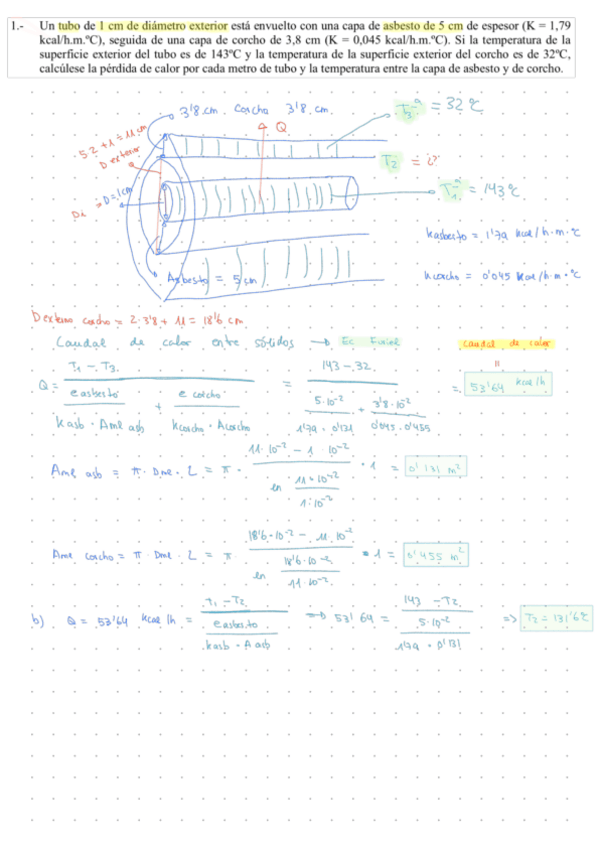 1.- Un tubo de 1 cm de diámetro exterior está envuelto con una capa de asbesto de 5 cm de espesor (K = 1,79
kcal/h.m.ºC), seguida de una capa de corcho de 3,8 cm (K = 0,045 kcal/h.m.ºC). Si la temperatura de la
superficie exterior del tubo es de 143ºC y la temperatura de la superficie exterior del corcho es de 32ºC,
calcúlese la pérdida de calor por cada metro de tubo y la temperatura entre la capa de asbesto y de corcho.
3'8 cm. Corcho 3'8 cm.
T3 = 32 ºC
5·2+1 = 11 cm
D exterior
Q
T2 = ¿?
D=1cm
Di
T1 = 143 ºC
Asbesto = 5 cm
kasbesto = 1'79 kcal/h·m·ºC
kcorcho = 0'045 kcal/h·m·ºC
Dexterno corcho = 2·3'8 + 11 = 18'6 cm
Caudal de calor entre sólidos → Ec Fourier
caudal de calor
Q = T1 - T3 / e asbesto / kasb · Aml asb + e corcho / kcorcho · Acorcho = 143 - 32 / 5·10-2 / 1'79 · 0'131 + 3'8·10-2 / 0'045 · 0'455 = 53'64 kcal/h
Aml asb = π · Dml · L = π · 11·10-2 - 1·10-2 / ln 11·10-2 / 1·10-2 · 1 = 0'131 m2
Aml corcho = π · Dml · L = π · 18'6·10-2 - 11·10-2 / ln 18'6·10-2 / 11·10-2 · 1 = 0'455 m2
b) Q = 53'64 kcal/h = T1 - T2 / e asbesto / kasb · A asb => 53'64 = 143 - T2 / 5·10-2 / 1'79 · 0'131 => T2 = 131'6 ºC